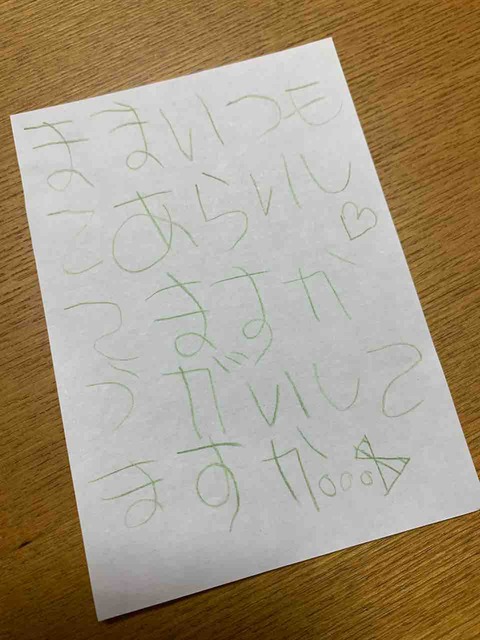 ままいつも
こあらいし♡
てますか
うがいして
ますか。。。